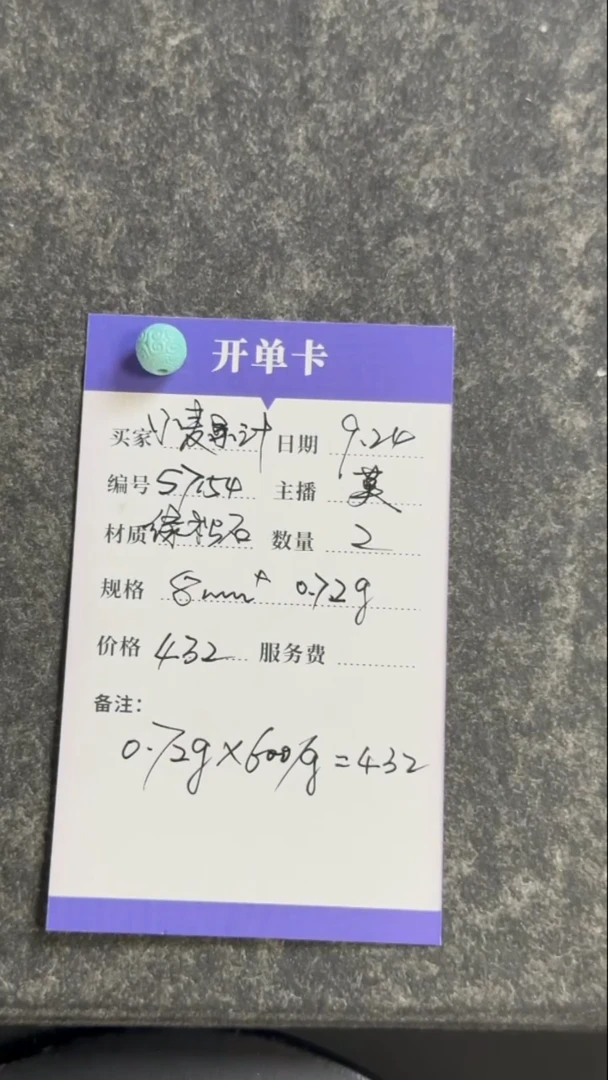 开单卡
买家 小麦果汁 日期 9.24
编号 57154 主播 英
材质 绿松石 数量 2
规格 8mm+ 0.72g
价格 432 服务费
备注:
0.72g×600/g=432